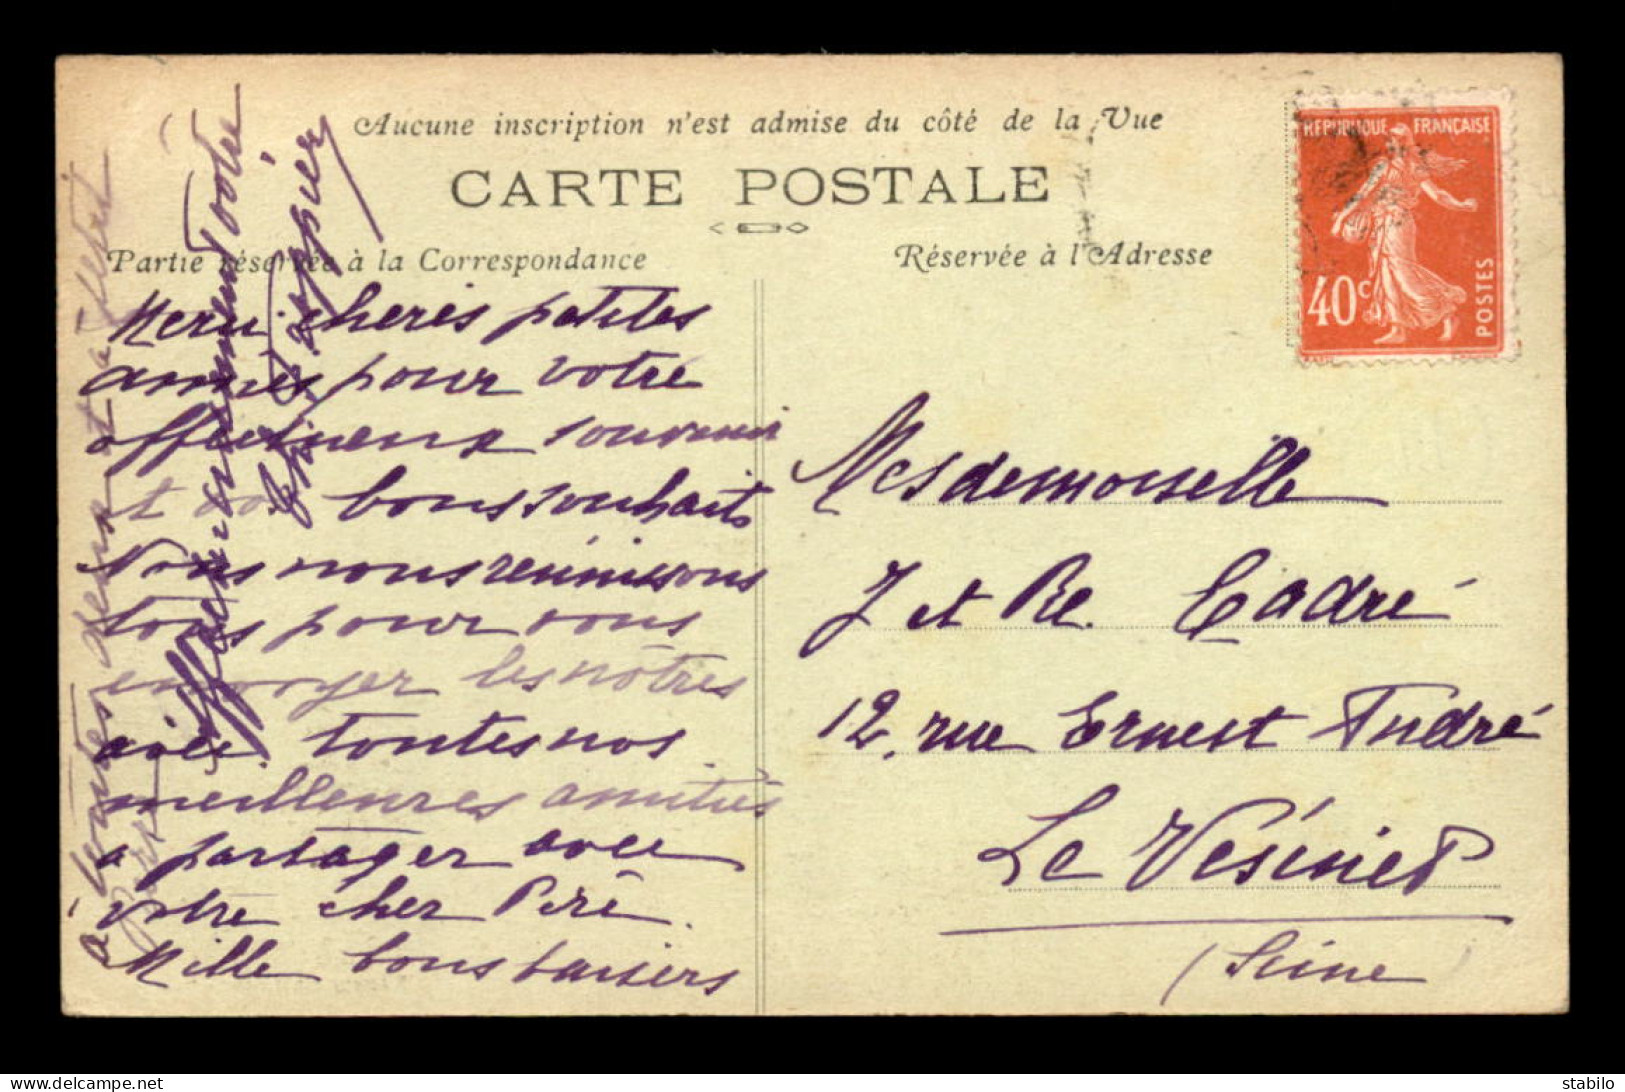 Aucune inscription n'est admise du côté de la Vue
CARTE POSTALE
Partie réservée à la Correspondance
Réservée à l'Adresse
RÉPUBLIQUE FRANÇAISE
40c
POSTES
Merci cheres petites
amies pour votre
affectueux souvenir
et vos bons souhaits
Nous nous réunissons
tous pour vous
envoyer les nôtres
avec toutes nos
meilleures amitiés
a partager avec
votre cher Pere.
Mille bons baisers
à toutes deux et à
Affectueusement Votre
Mesdemoiselle
J et Re. Cadré
12, rue Ernest André
Le Vésinet
(Seine
delcampe.net
stabilo